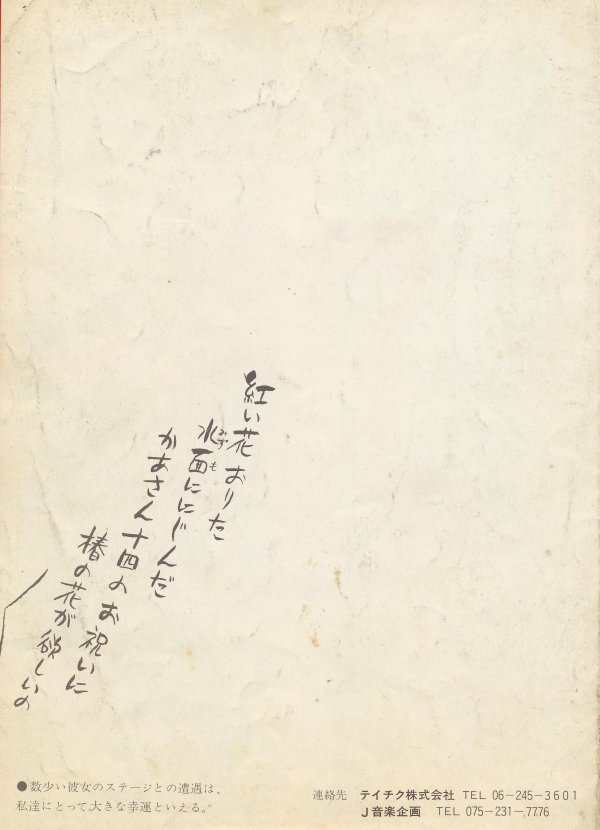 紅い花おりた
水面ににじんだ
かあさん十四のお祝いに
椿の花が欲しいの
●数少い彼女のステージとの遭遇は、
私達にとって大きな幸運といえる。
連絡先 テイチク株式会社 TEL 06-245-3601
J音楽企画 TEL 075-231-7776